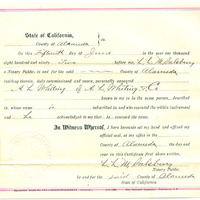 State of California,
County of Alameda } ss.
On this Fifteenth day of June in the year one thousand
eight hundred and ninety Two before me, L. L. McSalsbury
a Notary Public in and for the said County of Alameda
residing therein, duly commissioned and sworn, personally appeared
A. L. Whitney of A. L. Whitney & Co
known to me to be the same person described
in, whose name is subscribed to and who executed the within instrument
and he acknowledged to me that he executed the same.
In Witness Whereof, I have hereunto set my hand and affixed my
official seal, at my office in the
County of Alameda the day and
year in this Certificate first above written.
L. L. McSalsbury
Notary Public
In and for the said County of Alameda
State of California.